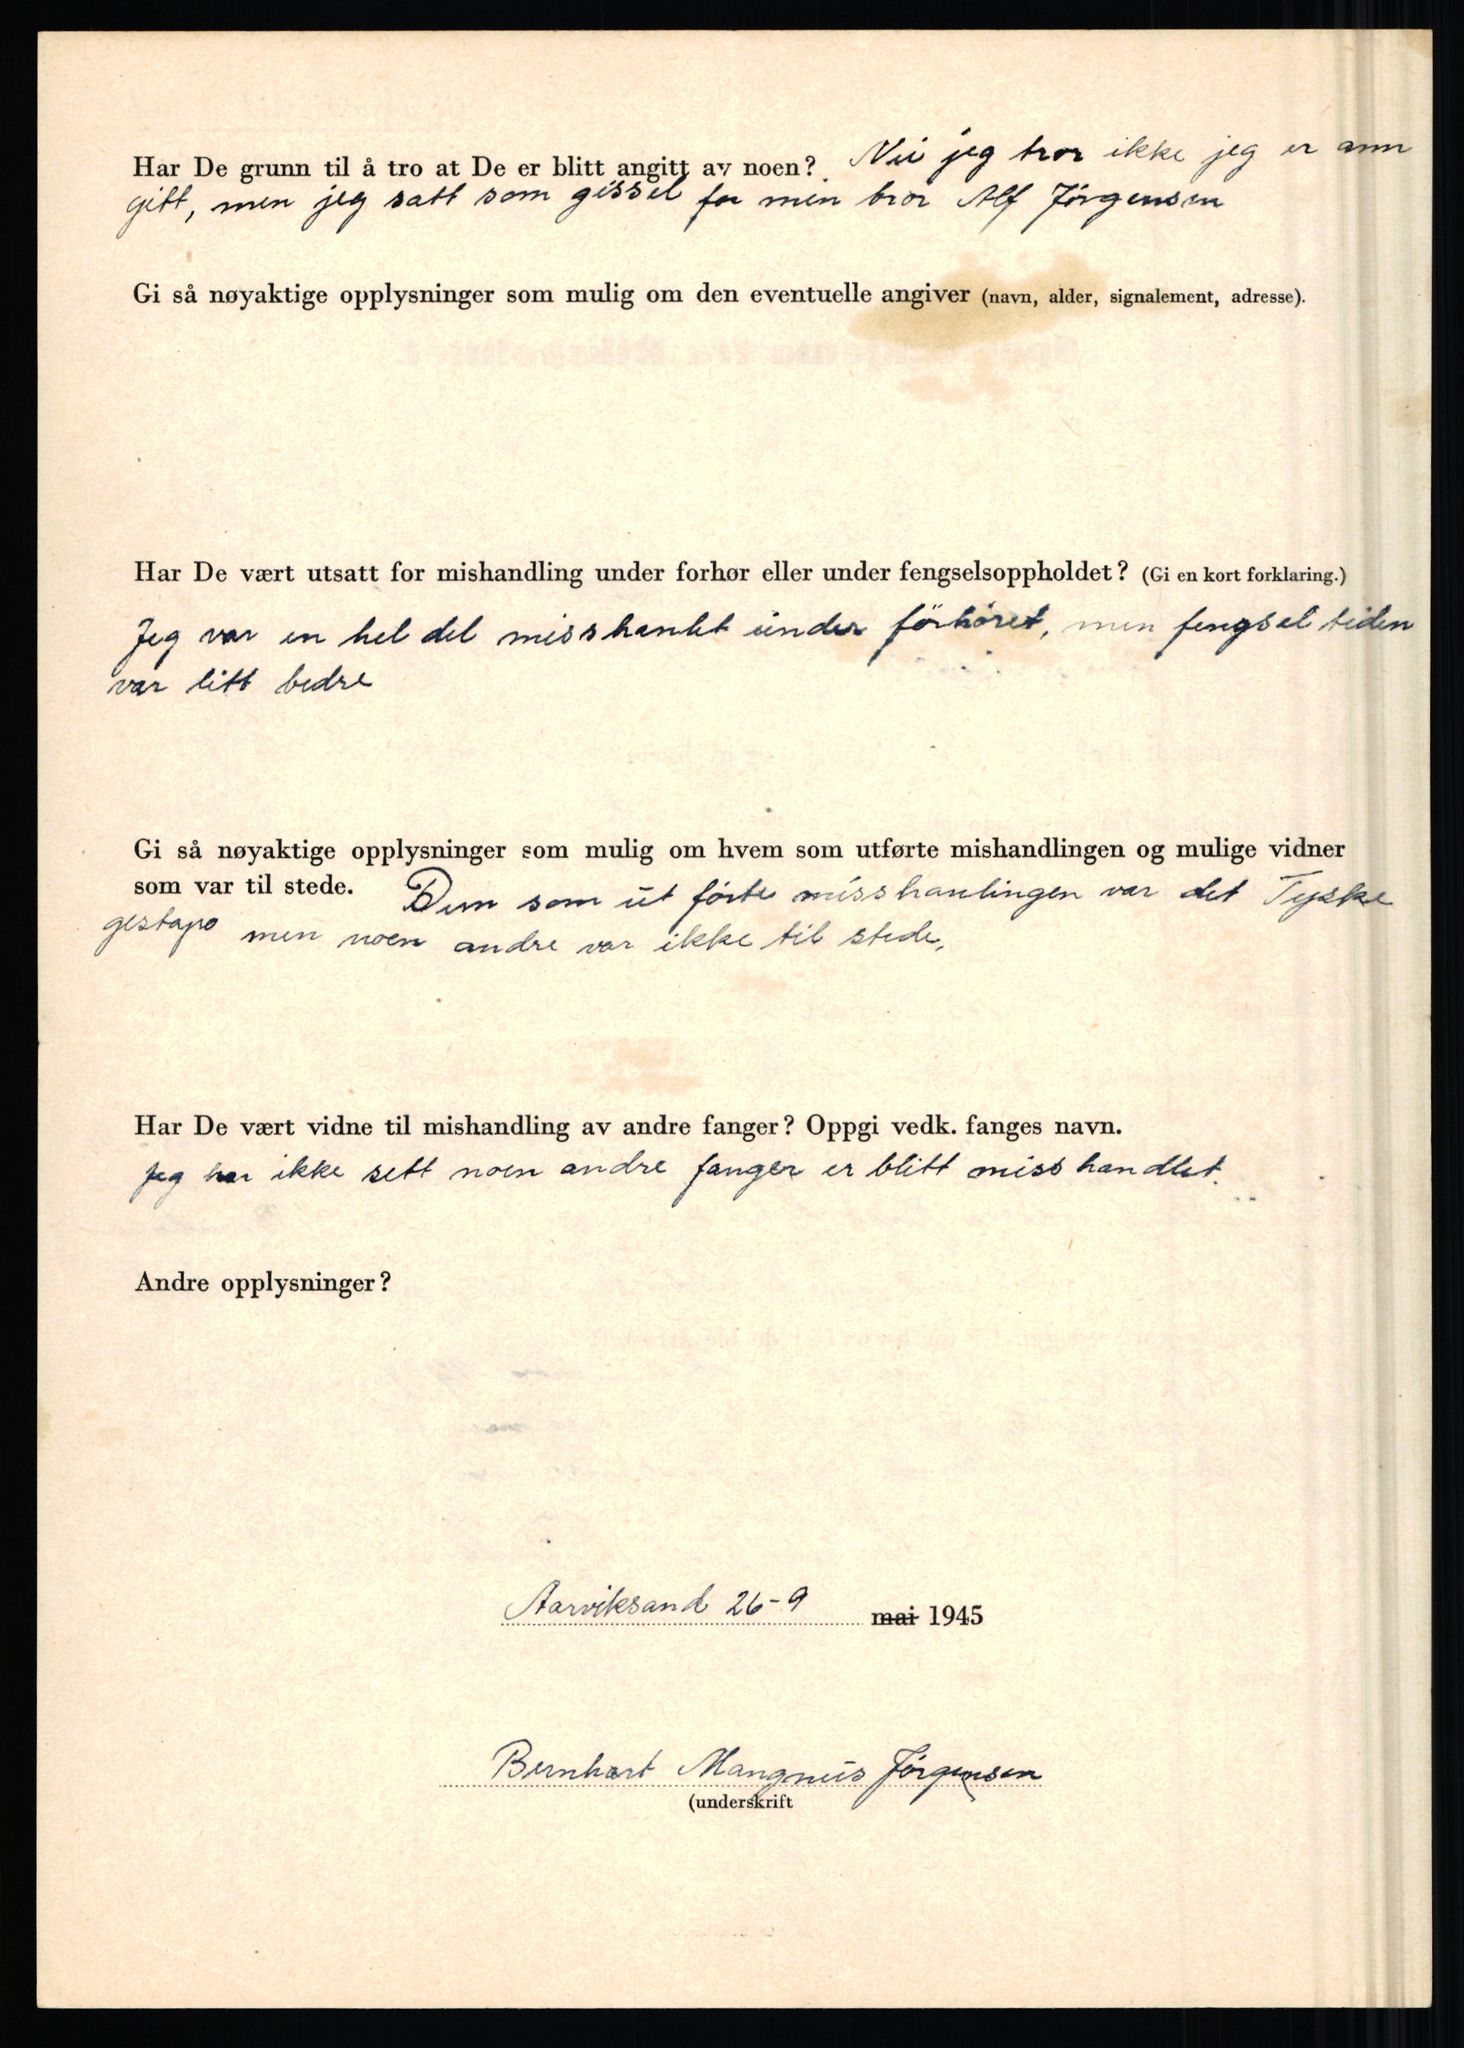 Har De grunn til å tro at De er blitt angitt av noen? Nei jeg tror ikke jeg er ann
gitt, men jeg satt som gissel for min bror Alf Jørgensen
Gi så nøyaktige opplysninger som mulig om den eventuelle angiver (navn, alder, signalement, adresse).
Har De vært utsatt for mishandling under forhør eller under fengselsoppholdet? (Gi en kort forklaring.)
Jeg var en hel del misshanlet under förhöret, men fengsel tiden
var litt bedre
Gi så nøyaktige opplysninger som mulig om hvem som utførte mishandlingen og mulige vidner
som var til stede. Dem som ut førte misshanlingen var det Tyske
gestapo men noen andre var ikke til stede,
Har De vært vidne til mishandling av andre fanger? Oppgi vedk. fanges navn.
Jeg har ikke sett noen andre fanger er blitt misshandlet.
Andre opplysninger?
Aarviksand 26-9 mai 1945
Bernhart Mangnus Jørgensen
(underskrift